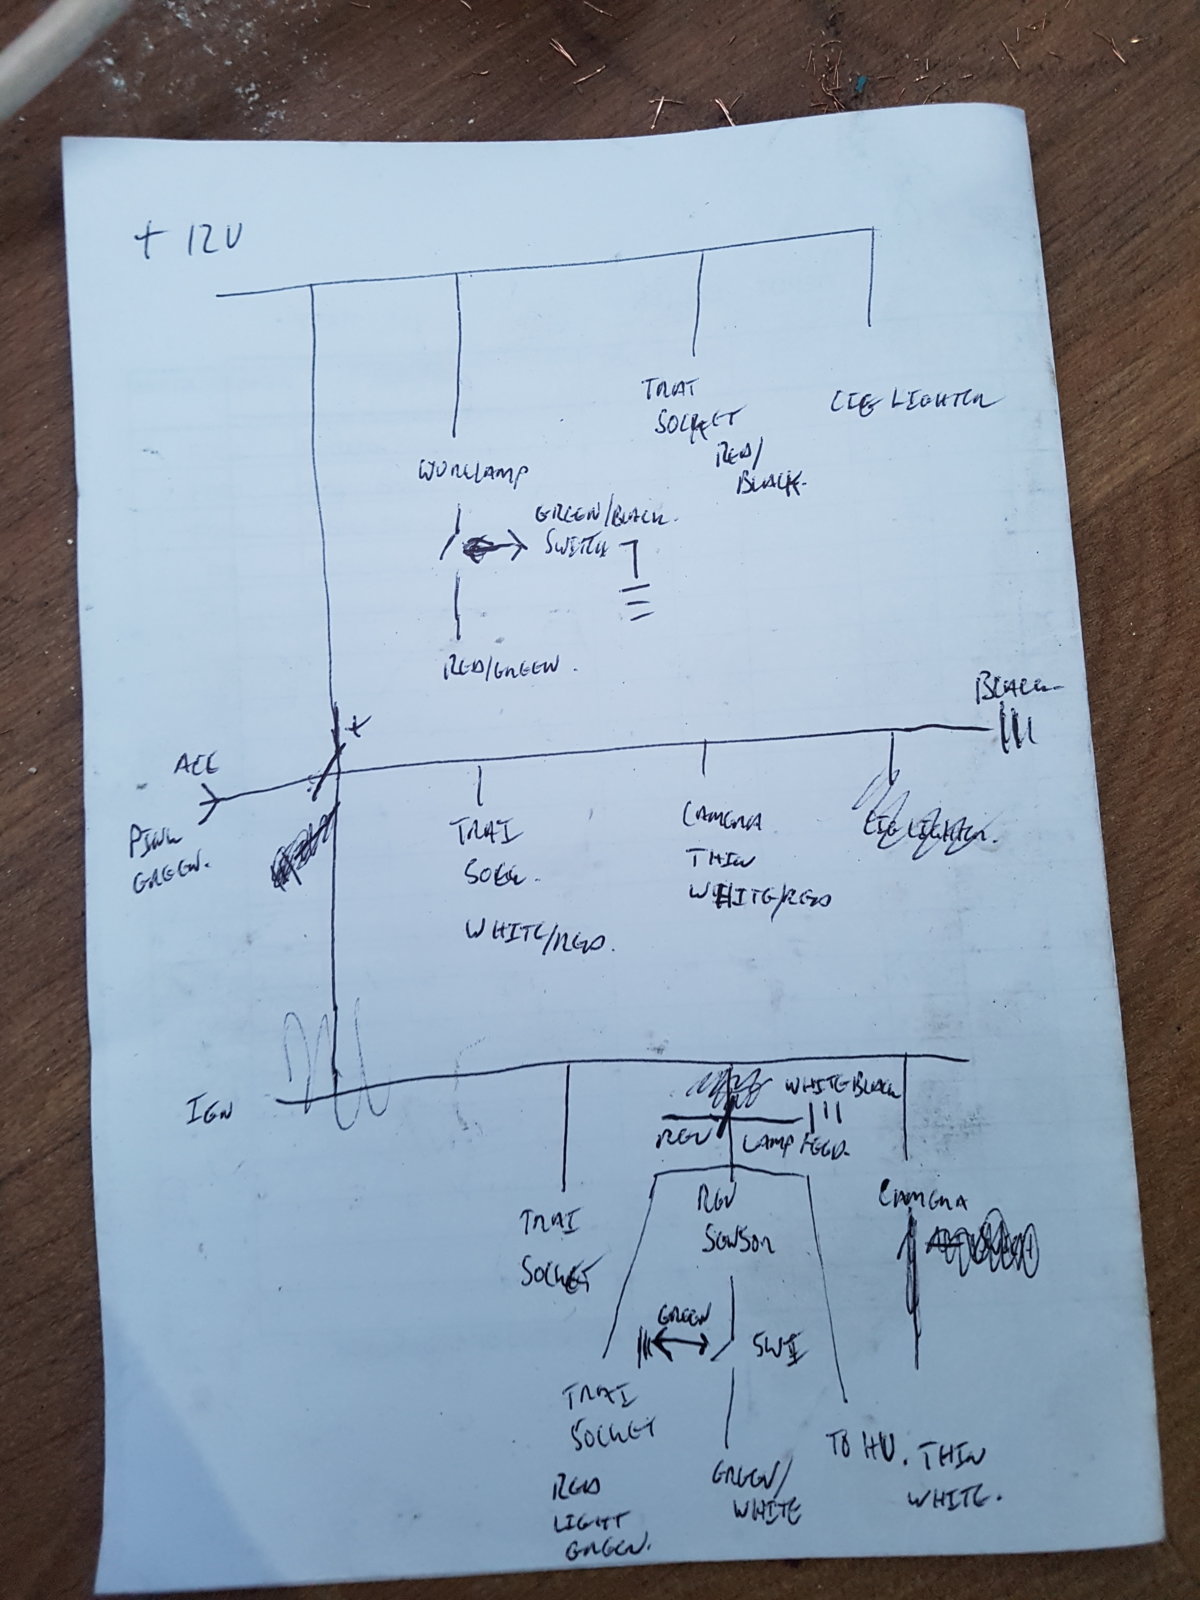 + 12V
TRAI
SOCKET
RED/
BLACK.
CIG LIGHTER
WORKLAMP
GREEN/BLACK.
SWITCH
RED/GREEN.
BLACK
+
ACC
PINK
GREEN.
TRAI
SOCK.
WHITE/RED.
CAMERA
THIN
WHITE/RED
CIG LIGHTER.
IGN
WHITE BLACK
REV LAMP FEED.
TRAI
SOCKET
REV
SENSOR
CAMERA
GREEN
SWI
TRAI
SOCKET
RED
LIGHT
GREEN.
GREEN/
WHITE
TO HU. THIN
WHITE.